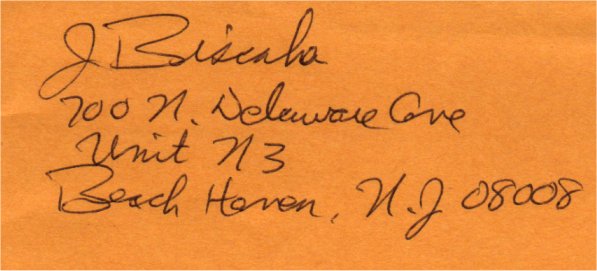 J Biscaha
700 N. Delaware Ave
Unit N3
Beach Haven, N.J 08008